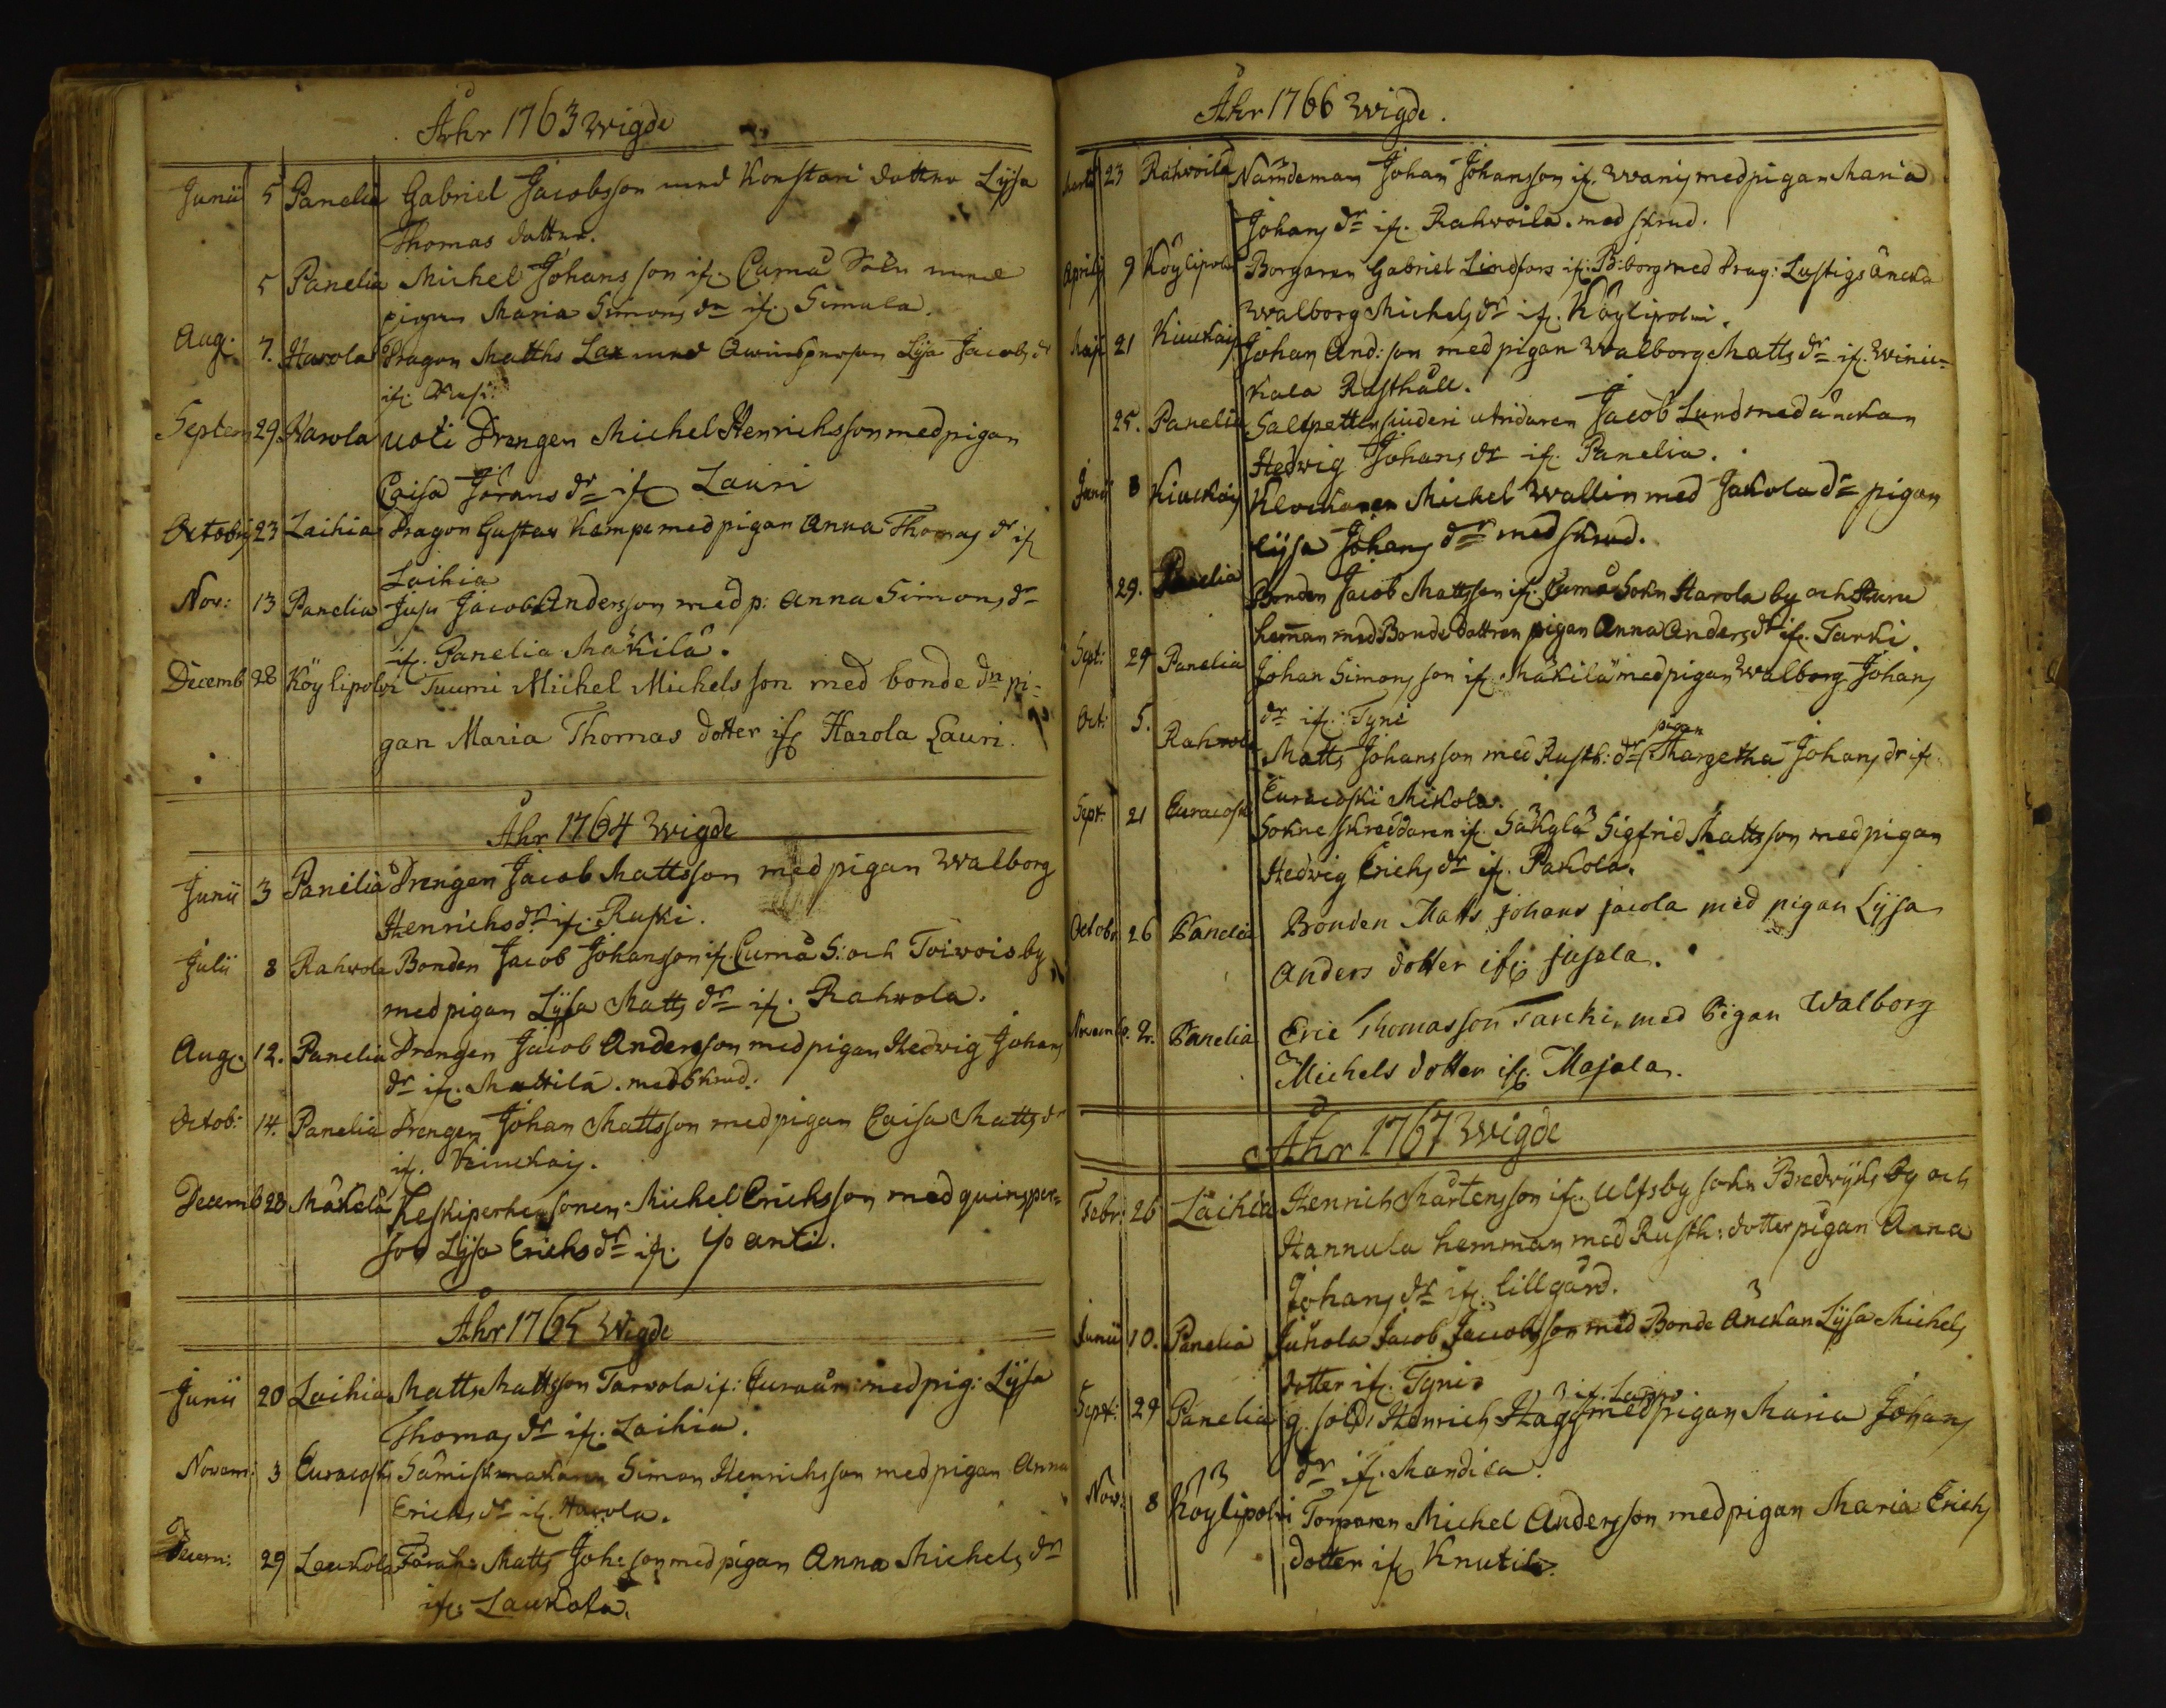 Åhr 1763 wigde
Junii 5 Panelia Gabriel Jacobsson med Konstari dotter Lysa
Thomas dotter.
5 Panelia Michel Johansson if. Cumå Sokn med
pigan Maria Simons dr if. Simula.
Aug. 7. Harola Dragon Matths Lax med Qwinspersson Lysa Jacobs dr
if.
Septem 29. Harola Uoti Drengen Michel Henrichsson med pigan
Caisa Jörans dr if Lauri
Octobris 23 Laihia Dragon Gustav Kampe med pigan Anna Thomas dr if
Laihia
Nov: 13 Panelia Juju Jacob Andersson med p: Anna Simons dr
if. Panelia Mäkilä.
Decemb 28 Köylipolvi Tuumi Michel Michelsson med bonde dn pi-
gan Maria Thomas dotter if Harola Lauri.
Åhr 1764 wigde
Junii 3 Panelia Drengen Jacob Mattsson med pigan Walborg
Henrichs dr if. Ruski.
Julii 8 Rahvola Bonden Jacob Johansson if. Cumå S: och Toivois by
med pigan Lysa Matts dr if. Rahvola.
Aug. 12. Panelia Drengen Jacob Andersson med pigan Hedvig Johans
dr if. Mattila. med Skrud.
Octob: 14. Panelia Drengen Johan Mattsson med pigan Caisa Matts dr
if. Kiuckais.
Decemb 28 Mäkelä Keskiperhe sonen Michel Erichsson med quinsper-
son Lysa Erichs dr if. Iso anti.
Åhr 1765 Wigde
Junii 20 Laihia Matts Mattsson Tarvola if: Euraåm: med pig: Lysa
Thomas dr if. Laihia.
Novem: 3 Euracoski Sämiskmakaren Simon Henrichsson med pigan Anna
Erichs dr if. Harola.
Decem: 29 Laukola Matts Joh: son med pigan Anna Michels dr
if: Laukola.
Åhr 1766 Wigde.
Martii 23 Rahvoila Nämdeman Johan Johansson if. Wanis med pigan Maria
Johans dr if. Rahvoila. med skrud.
Aprilis 9 Köylipolvi Borgaren Gabriel Lindfors if: B:borg med Drag: Lustigs Äncka
Walborg Michels dr if. Köylipolvi.
Maji 21 Kiuckais Johan And: son med pigan Walborg Matts dr if. Winic-
kala Rusthåll.
25. Panelia Saltpettersiuderi utridaren Jacob Lund med änckan
Hedvig Johans dr if. Panelia.
Junii 8 Kiuckais Klockaren Michel Wallin med Jakola dr pigan
Lysa Johans dr med skrud.
29. Panelia Bonden Jacob Mattsson if. Cumå Sokn Harola by och
hemman med Bonde dottren pigan Anna Anders dr if. Tarki.
Sept: 29 Panelia Johan Simonsson if. Mäkilä med pigan Walborg Johans
dr if. Tyni
Oct: 5. Rahvola Matts Johansson med Rusth: dr pigan Margetha Johans dr if.
Euracoski Mikola.
Sept: 21 Euracoski Sokne skreddaren if. Säkylä Sigfrid Mattsson med pigan
Hedvig Erichs dr if. Pakola.
Octobr 26 Panelia Bonden Matts Johans jacola med pigan Lysa
Anders dotter if. jusala.
Novemb. 2. Panelia Eric Thomasson Tarcki, med Pigan Walborg
Michels dotter if. Majala.
Åhr 1767 Wigde
Febr: 26 Laihia Henrich Mårtensson if. Ulfsby Sokn Bredvyks by och
Hannula hemman med Rusth: dotter pigan Anna
Johans dr if. Lillgård.
Junii 10. Panelia Juhola Jacob Jacobsson med Bonde Änckan Lysa Michels
dotter if. Tynis
Sept: 29 Panelia g. sold: Henrich Hagg if. Lappo. med pigan Maria Johans
dr if. Mandila.
Nov: 8 Köylipolvi Torparen Michel Andersson med pigan Maria Erichs
dotter if Knutila.